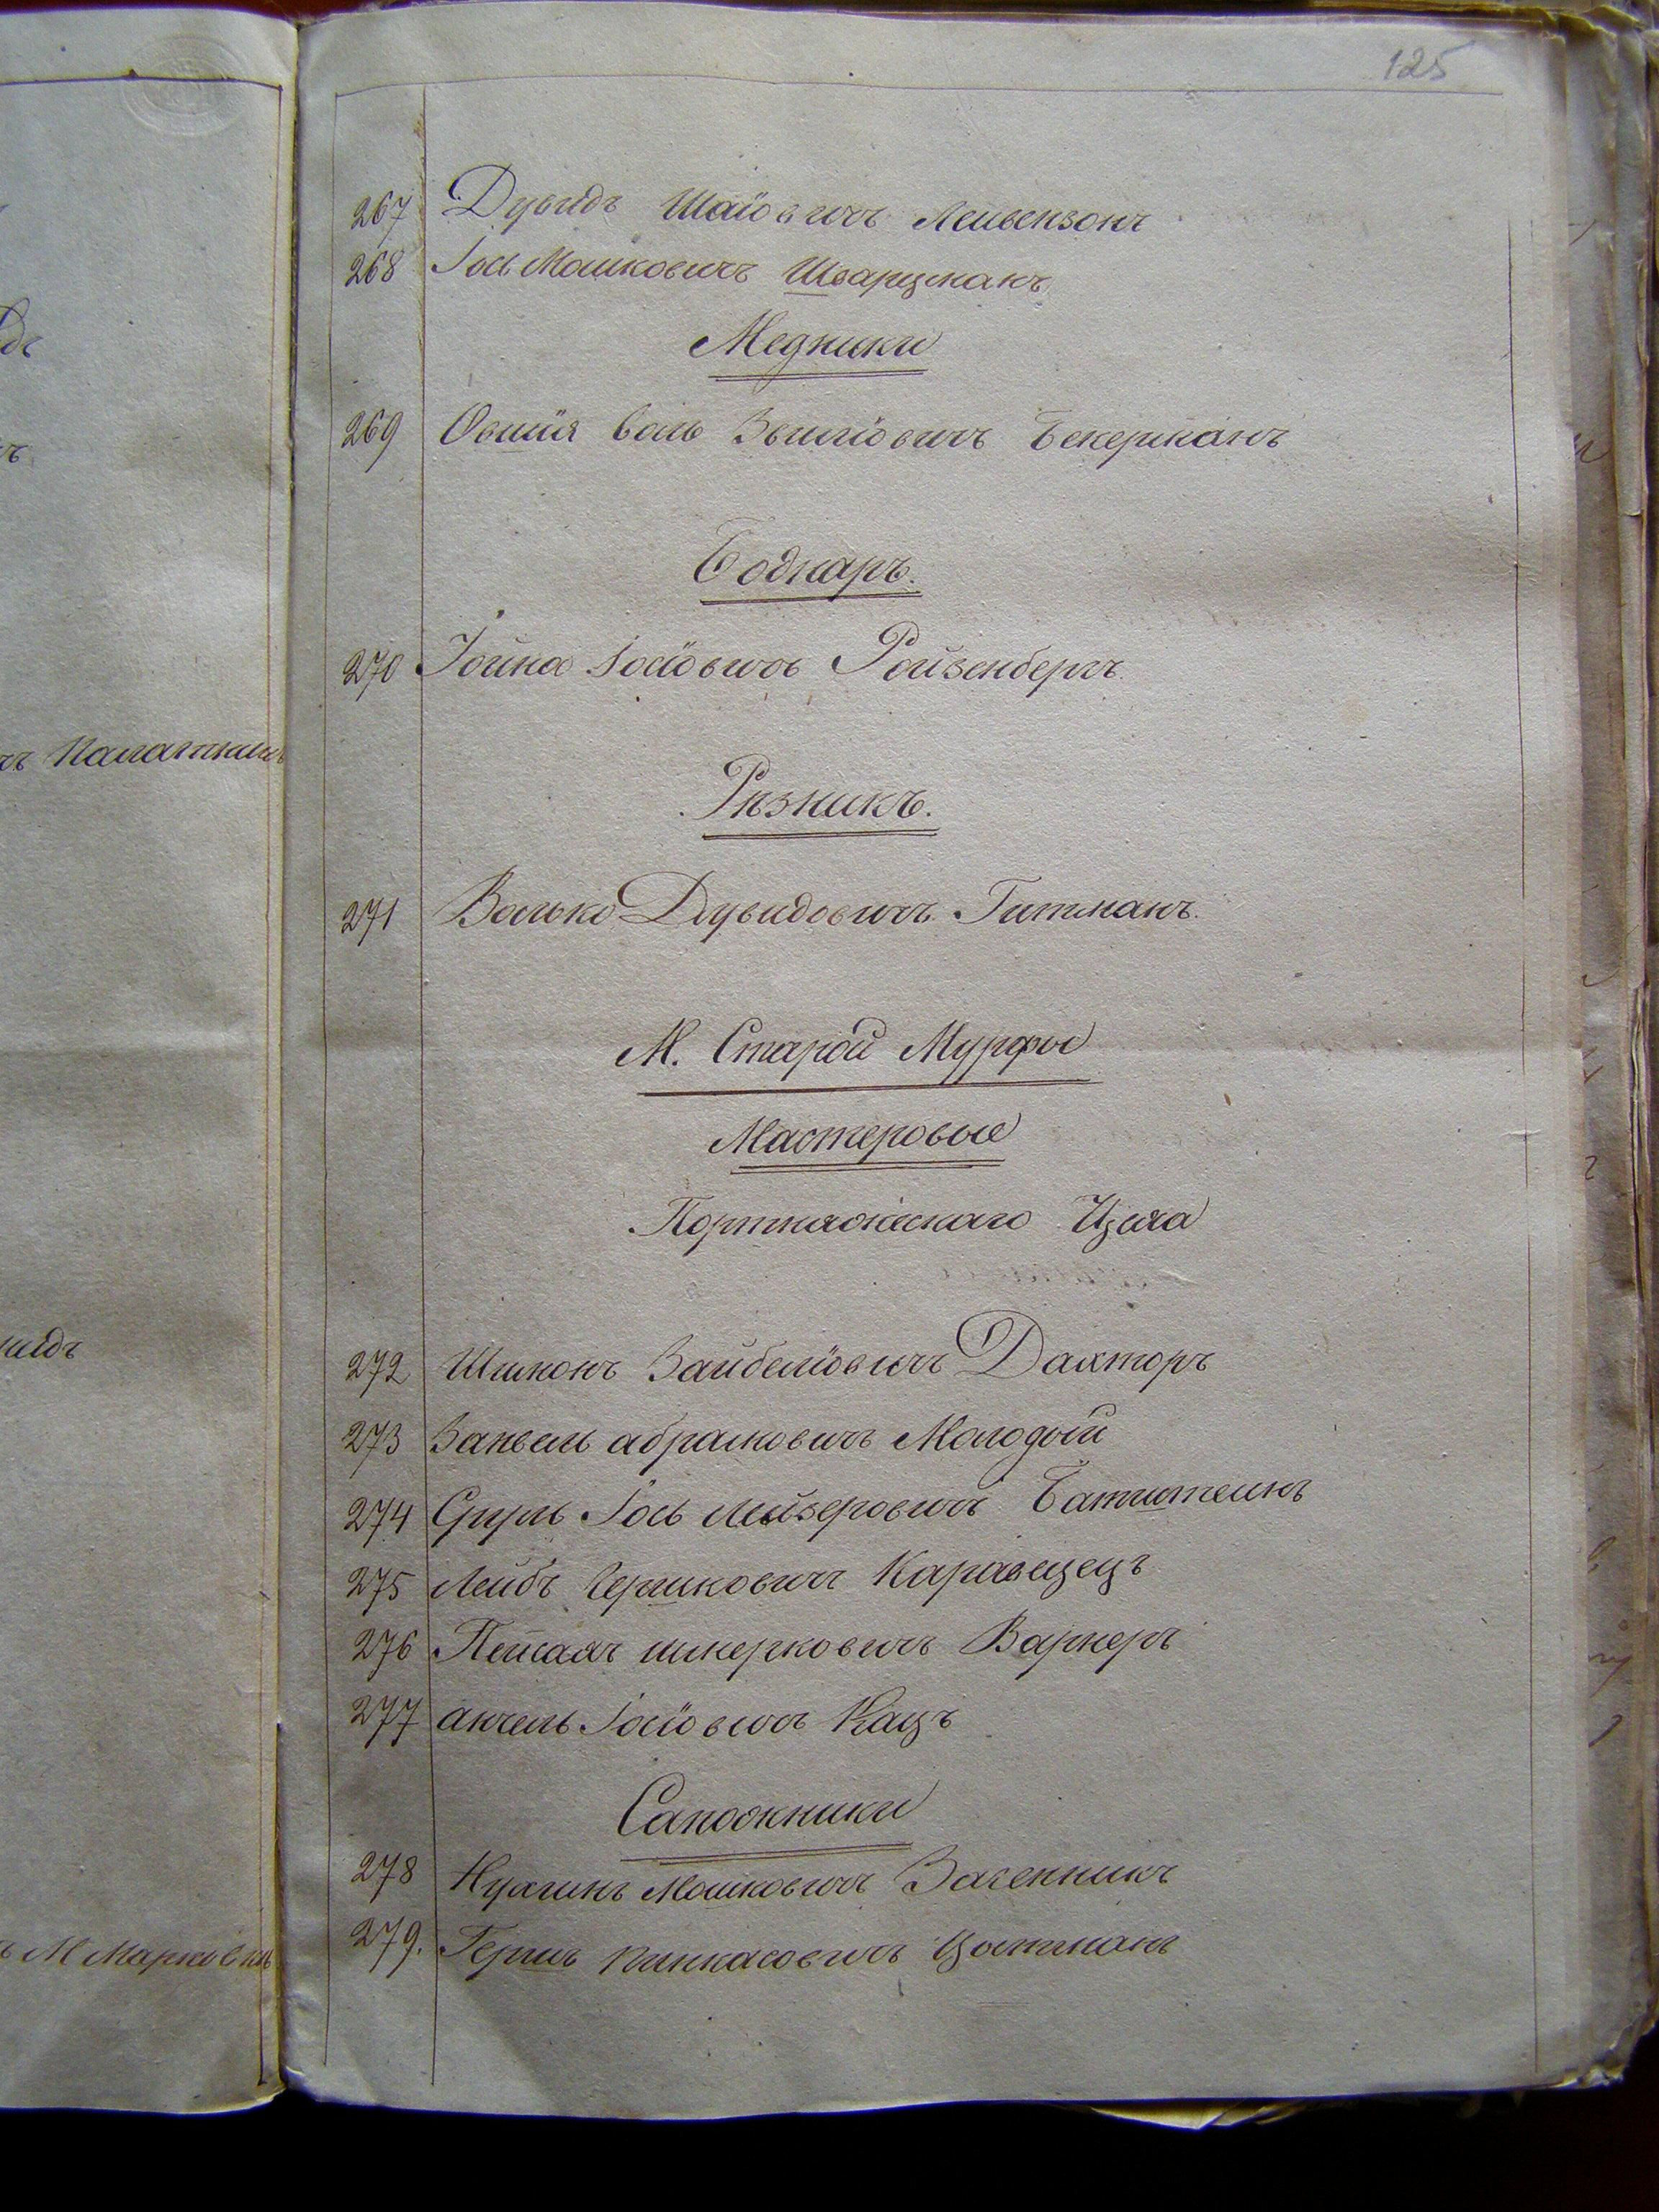 125
267 Дувидъ Шаiовичъ Лейвензонъ
268 Iось Мошковичъ Шварцманъ
Медники
269 Овшiя Волъ Бекерманъ
Боднаръ.
270 Iойна Iосiовичъ Ройзенбергъ.
Рѣзникъ.
271 Волько Дувидовичъ Гитманъ.
М. Старой Мурафы
Мастеровые
Портняжескаго Цеха
272 Шимонъ Зайвелiовичъ Дахторъ
273 Занвель абрамковичъ Молодой
274 Сруль Iось Лейзеровичъ
275 Лейбъ Гершковичъ
276 Песахъ шмерковичъ Варнеръ
277 анчель Iосiовичъ Кацъ
Сапожники
278 Нухимъ Мошковичъ
279. Гершъ пинкасовичъ
ъ Палатникъ
ъ М Марковичъ